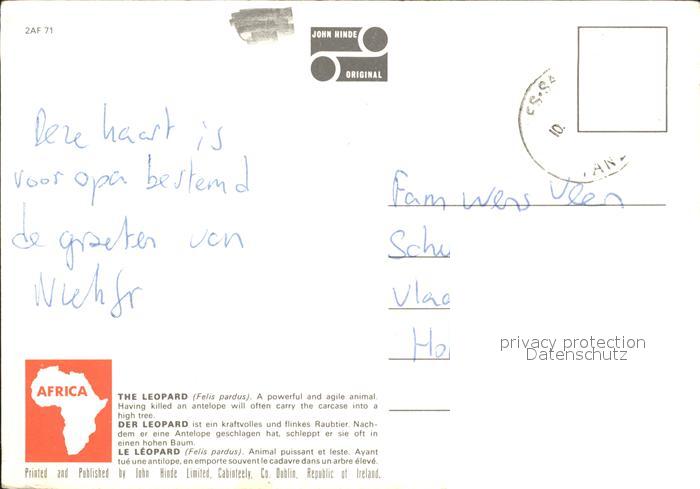 2AF 71
JOHN HINDE
ORIGINAL
Deze kaart is
voor opa bestemd
de groeten van
Fam
Schu
Vlaa
Hol
privacy protection
Datenschutz
AFRICA
THE LEOPARD (Felis pardus). A powerful and agile animal.
Having killed an antelope will often carry the carcase into a
high tree.
DER LEOPARD ist ein kraftvolles und flinkes Raubtier. Nach-
dem er eine Antelope geschlagen hat, schleppt er sie oft in
einen hohen Baum.
LE LÉOPARD (Felis pardus). Animal puissant et leste. Ayant
tué une antilope, en emporte souvent le cadavre dans un arbre élevé.
Printed and Published by John Hinde Limited, Cabinteely, Co. Dublin, Republic of Ireland.